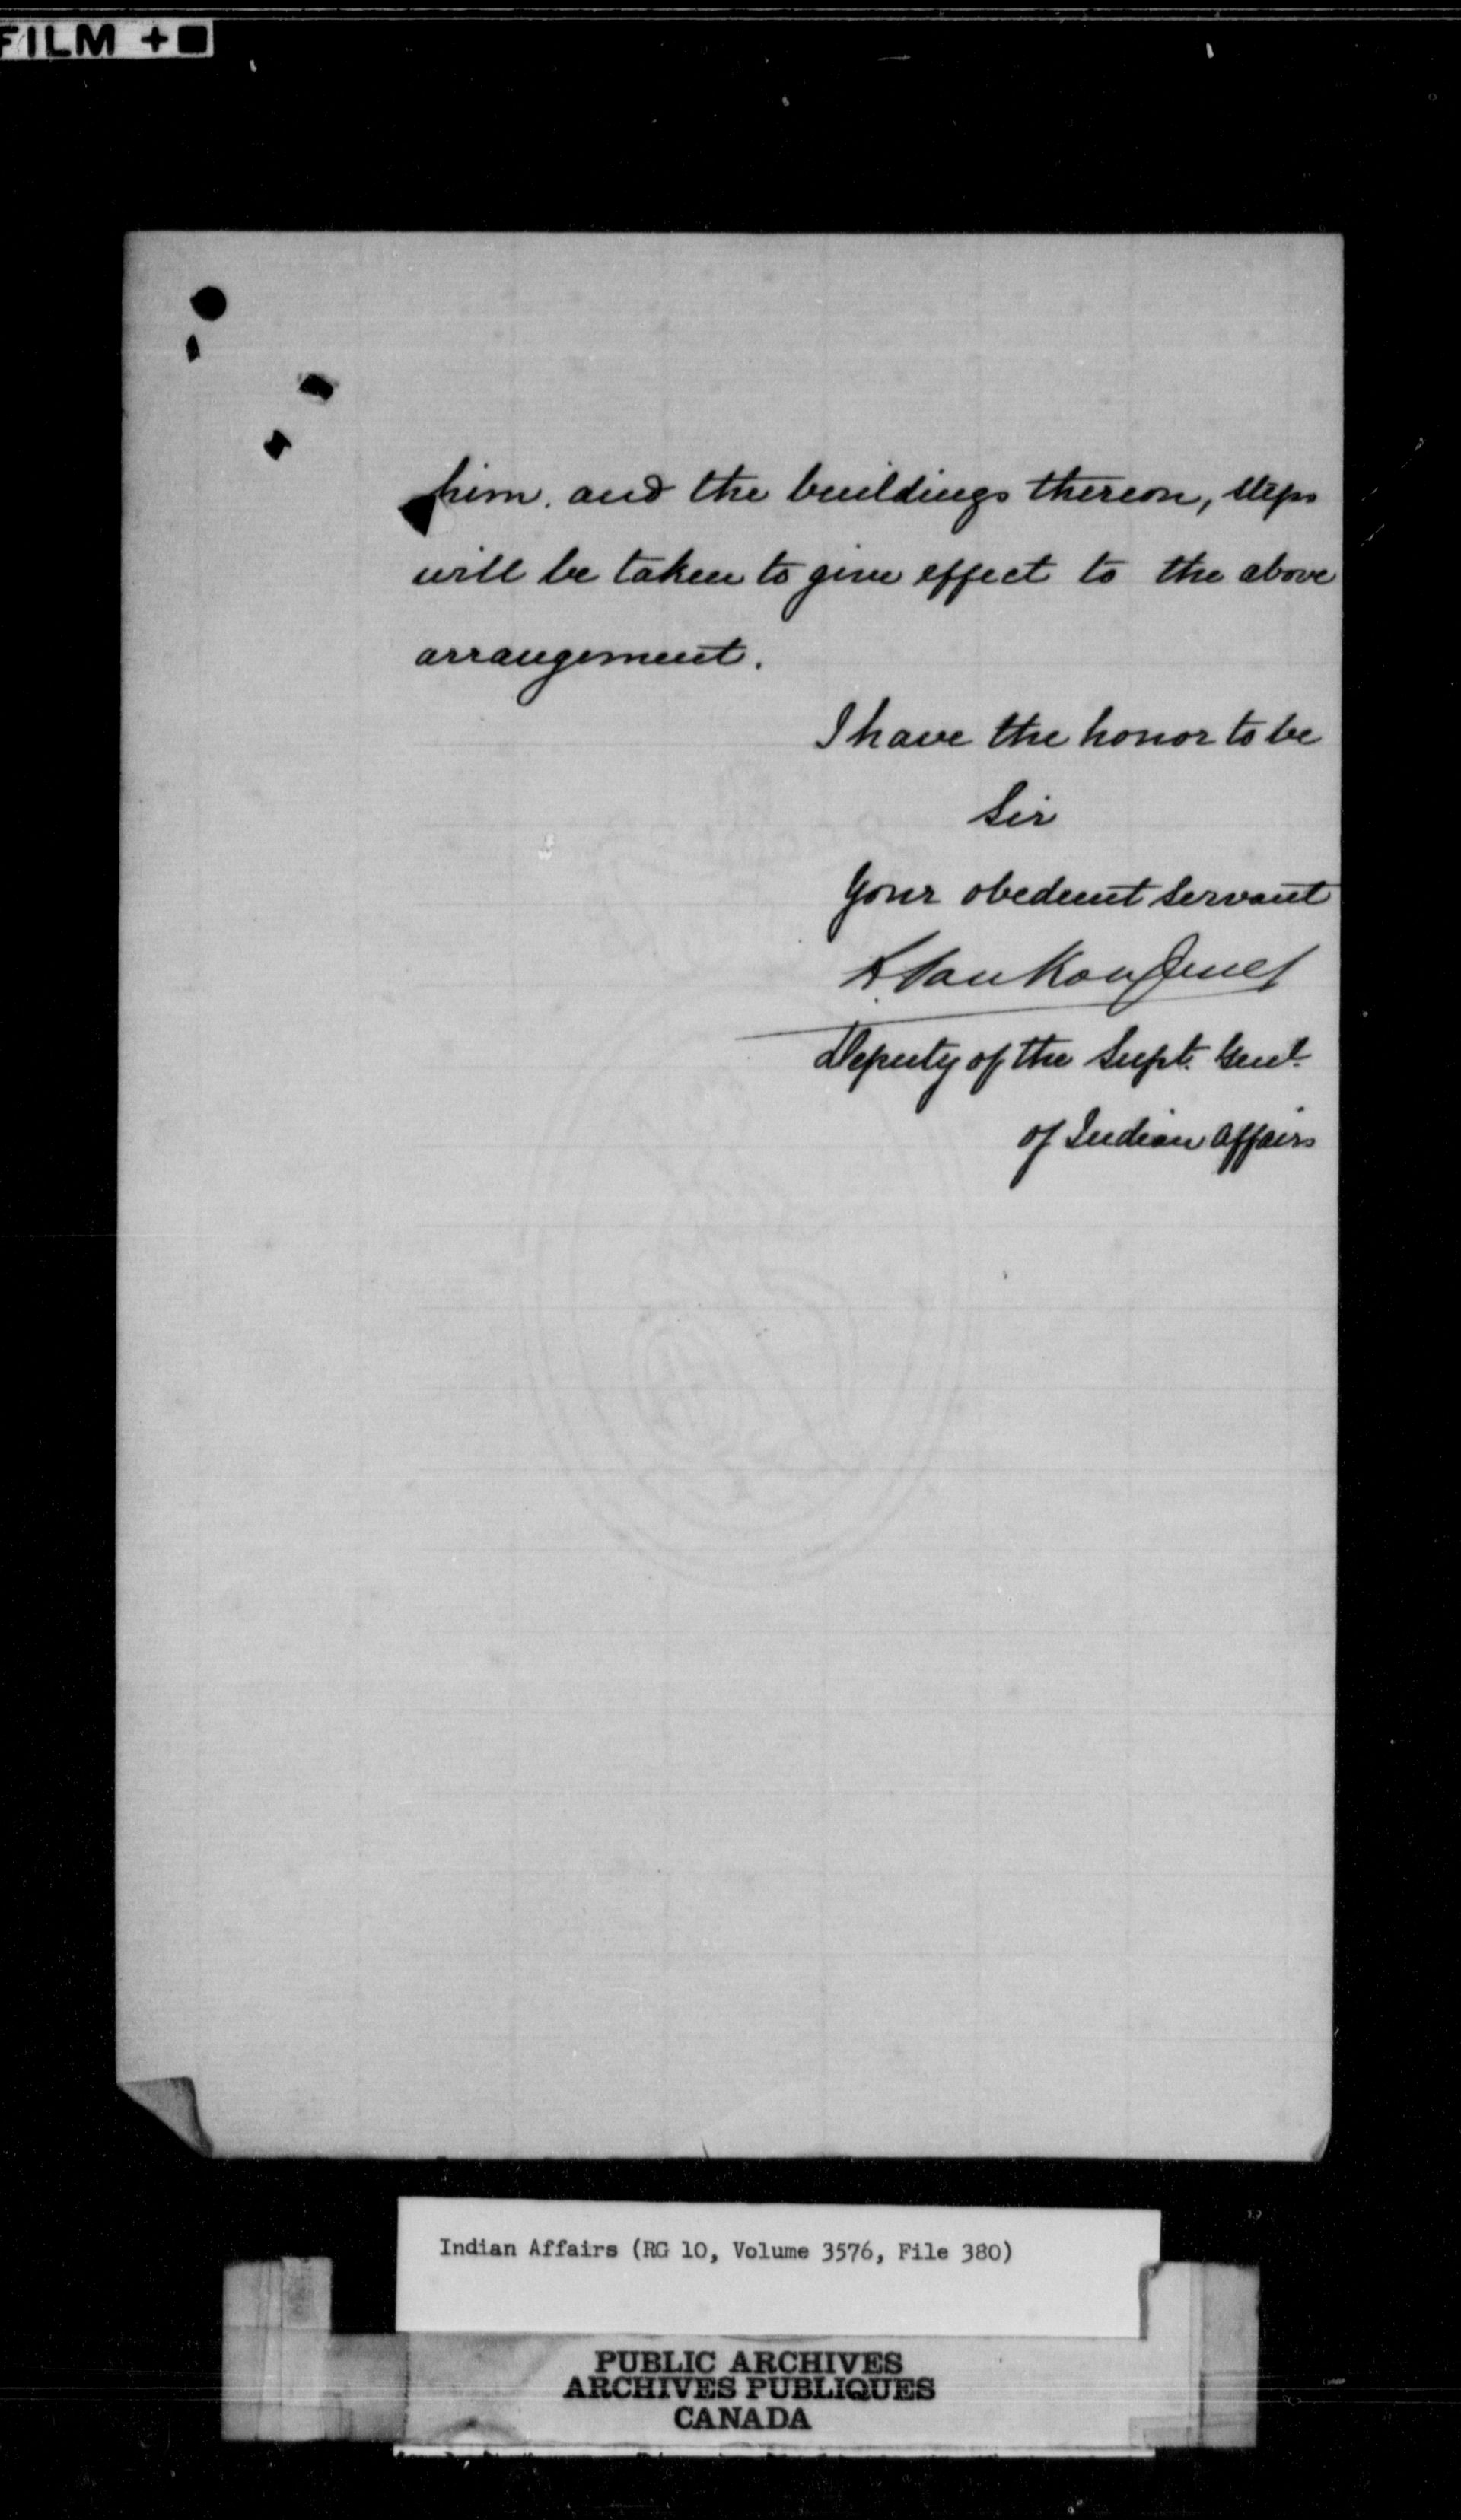 FILM +
him. and the buildings thereon, steps
will be taken to give effect to the above
arrangement.
I have the honor to be
Sir
Your obedient servant
L Van Koughnet
Deputy of the Supt. Genl.
of Indian Affairs
Indian Affairs (RG 10, Volume 3576, File 380)
PUBLIC ARCHIVES
ARCHIVES PUBLIQUES
CANADA